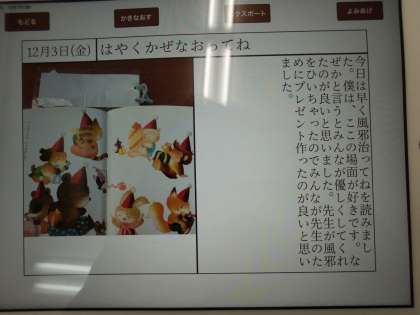 もどる
かきなおす
クスポート
よみあげ
12月3日(金)
はやくかぜなおってね
今日は早く風邪治ってねを読みまし
た。僕は、ここの場面が好きです。な
ぜかと言うとみんなが優しくしてくれ
たのが良いと思いました。先生が風邪
をひいちゃったのでみんなが先生のた
めにプレゼント作ったのが良いと思い
ました。